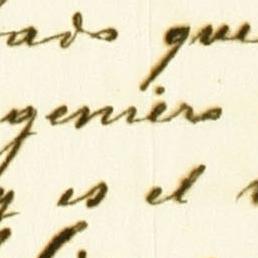 ados que
geniero
y es el